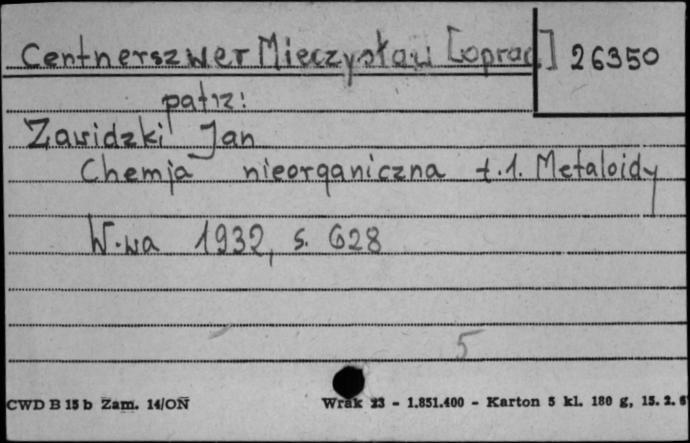 Centnerszwer Mieczysław [oprac.] 26350
patrz:
Zawidzki Jan
Chemja nieorganiczna t.1. Metaloidy
W-wa 1932, s. 628
5
CWD B 15 b Zam. 14/ON Wrak 23 - 1.851.400 - Karton 5 kl. 180 g, 15. 2. 6